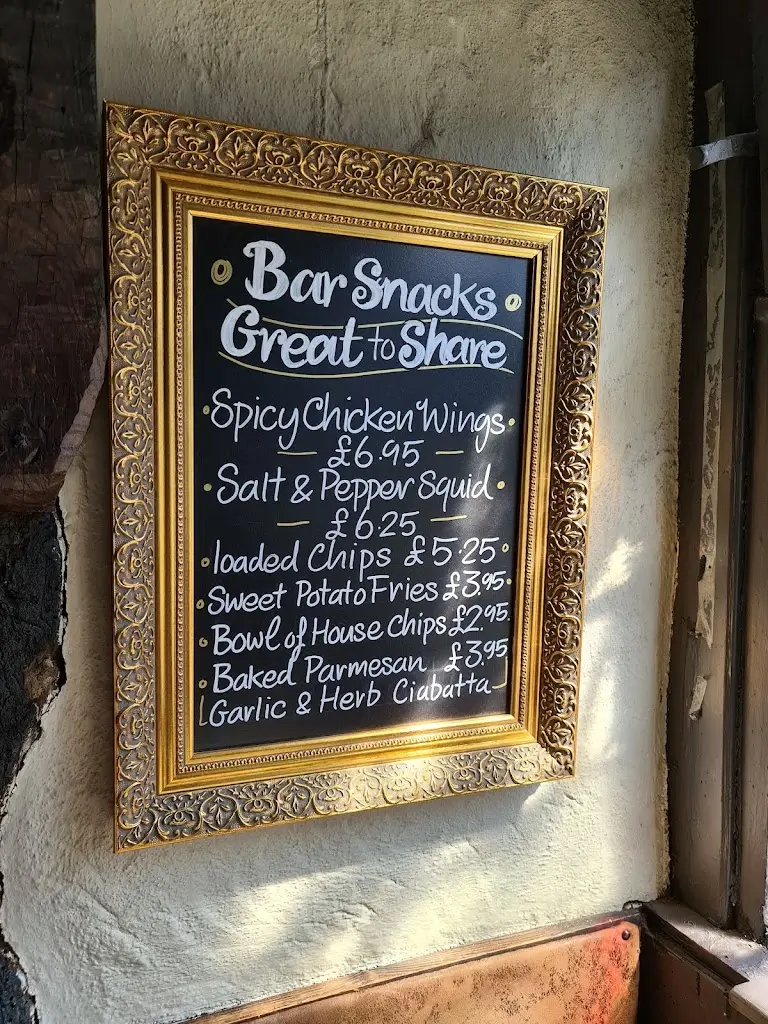 Bar Snacks
Great to Share
Spicy Chicken Wings
£6.95
Salt & Pepper Squid
£6.25
loaded Chips £5.25
Sweet Potato Fries £3.95
Bowl of House Chips £2.95
Baked Parmesan £3.95
Garlic & Herb Ciabatta